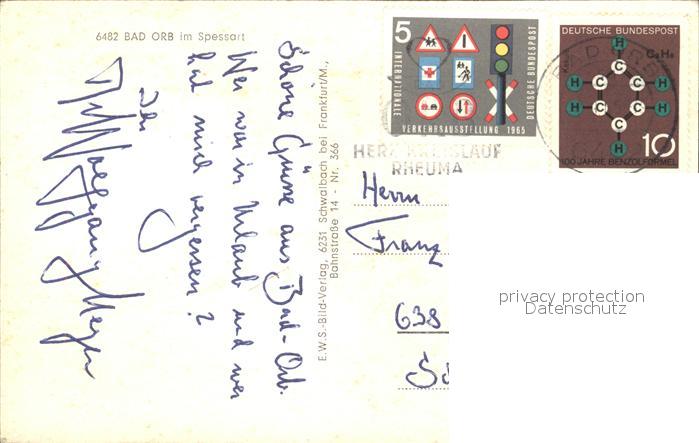 6482 BAD ORB im Spessart
Schöne Grüsse aus Bad-Orb.
Wer war in Urlaub und wer
hat mich vergessen?
Ihr
Wolfgang Meyer
E.W.S.-Bild-Verlag, 6231 Schwalbach bei Frankfurt/M.,
Bahnstraße 14 - Nr. 366
5
INTERNATIONALE
VERKEHRSAUSSTELLUNG 1965
DEUTSCHE BUNDESPOST
DEUTSCHE BUNDESPOST
C₆H₆
H
C
H C C H
H C C H
C
H
10
100 JAHRE BENZOLFORMEL
BAD ORB
HERZ KREISLAUF
RHEUMA
Herrn
Franz
638
privacy protection
Datenschutz